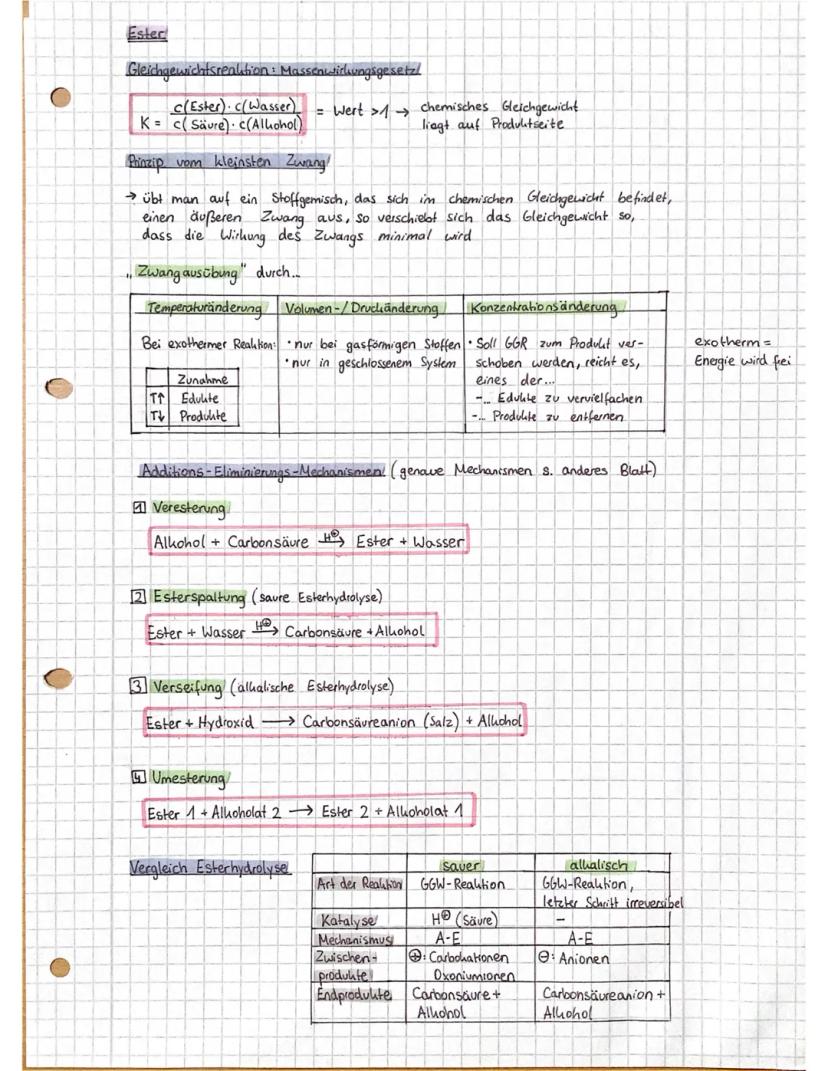 Ester
Gleichgewichtsreaktion: Massenwirkungsgesetz
K = c(Ester) · c(Wasser) / c(Säure) · c(Alkohol) = Wert >1 → chemisches Gleichgewicht
liegt auf Produktseite
Prinzip vom kleinsten Zwang
→ übt man auf ein Stoffgemisch, das sich im chemischen Gleichgewicht befindet,
einen äußeren Zwang aus, so verschiebt sich das Gleichgewicht so,
dass die Wirkung des Zwangs minimal wird
„Zwangausübung" durch...
Temperaturänderung
Bei exothermer Reaktion:
Zunahme
T↑ Edukte
T↓ Produkte
Volumen-/Druckänderung
• nur bei gasförmigen Stoffen
• nur in geschlossenem System
Konzentrationsänderung
• Soll GGR zum Produkt ver-
schoben werden, reicht es,
eines der...
-... Edukte zu vervielfachen
-... Produkte zu entfernen
exotherm =
Energie wird frei
Additions-Eliminierungs-Mechanismen (genaue Mechanismen s. anderes Blatt)
1 Veresterung
Alkohol + Carbonsäure H⊕→ Ester + Wasser
2 Esterspaltung (saure Esterhydrolyse)
Ester + Wasser H⊕→ Carbonsäure + Alkohol
3 Verseifung (alkalische Esterhydrolyse)
Ester + Hydroxid → Carbonsäureanion (Salz) + Alkohol
4 Umesterung
Ester 1 + Alkoholat 2 → Ester 2 + Alkoholat 1
Vergleich Esterhydrolyse
sauer alkalisch
Art der Reaktion GGW-Reaktion GGW-Reaktion,
letzter Schritt irreversibel
Katalyse H⊕ (Säure) –
Mechanismus A-E A-E
Zwischen- ⊕: Carbokationen ⊖: Anionen
produkte Oxoniumionen
Endprodukte Carbonsäure + Carbonsäureanion +
Alkohol Alkohol